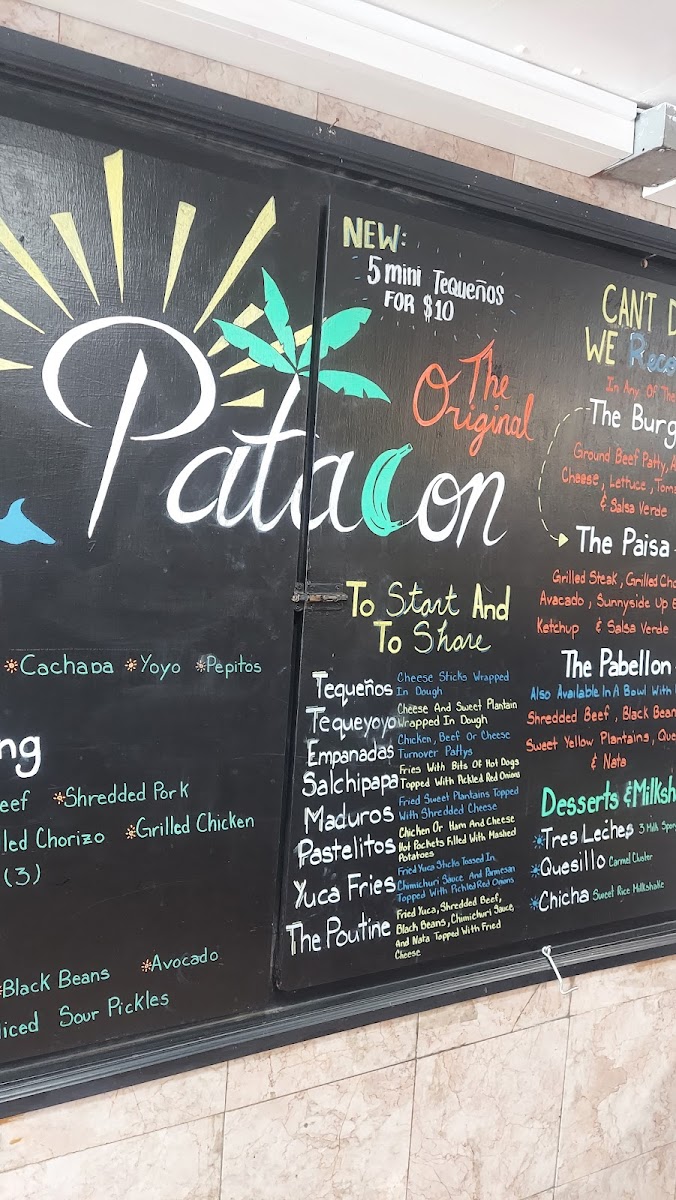 Patacon
Cachapa Yoyo Pepitos
ng
eef Shredded Pork
led Chorizo Grilled Chicken
(3)
Black Beans Avocado
liced Sour Pickles
NEW:
5 mini Tequeños
FOR $10
The
Original
To Start And
To Share
Tequeños Cheese Sticks Wrapped
In Dough
Tequeyoyo Cheese And Sweet Plantain
Wrapped In Dough
Empanadas Chicken, Beef Or Cheese
Turnover Pattys
Salchipapa Fries With Bits Of Hot Dogs
Topped With Pickled Red Onions
Maduros Fried Sweet Plantains Topped
With Shredded Cheese
Pastelitos Chicken Or Ham And Cheese
Hot Pockets Filled With Mashed
Potatoes
Yuca Fries Fried Yuca Sticks Tossed In
Chimichuri Sauce And Parmesan
Topped With Pickled Red Onions
The Poutine Fried Yuca, Shredded Beef,
Black Beans, Chimichuri Sauce,
And Nata Topped With Fried
Cheese
CAN'T D
WE Reco
In Any Of The
The Burg
Ground Beef Patty, A
Cheese, Lettuce, Toma
& Salsa Verde
The Paisa -
Grilled Steak, Grilled Cho
Avacado, Sunnyside Up E
Ketchup & Salsa Verde
The Pabellon -
Also Available In A Bowl With
Shredded Beef, Black Bean
Sweet Yellow Plantains, Que
& Nata
Desserts & Milksh
Tres Leches 3 Milk Spon
Quesillo Carmel Cluster
Chicha Sweet Rice Milkshake